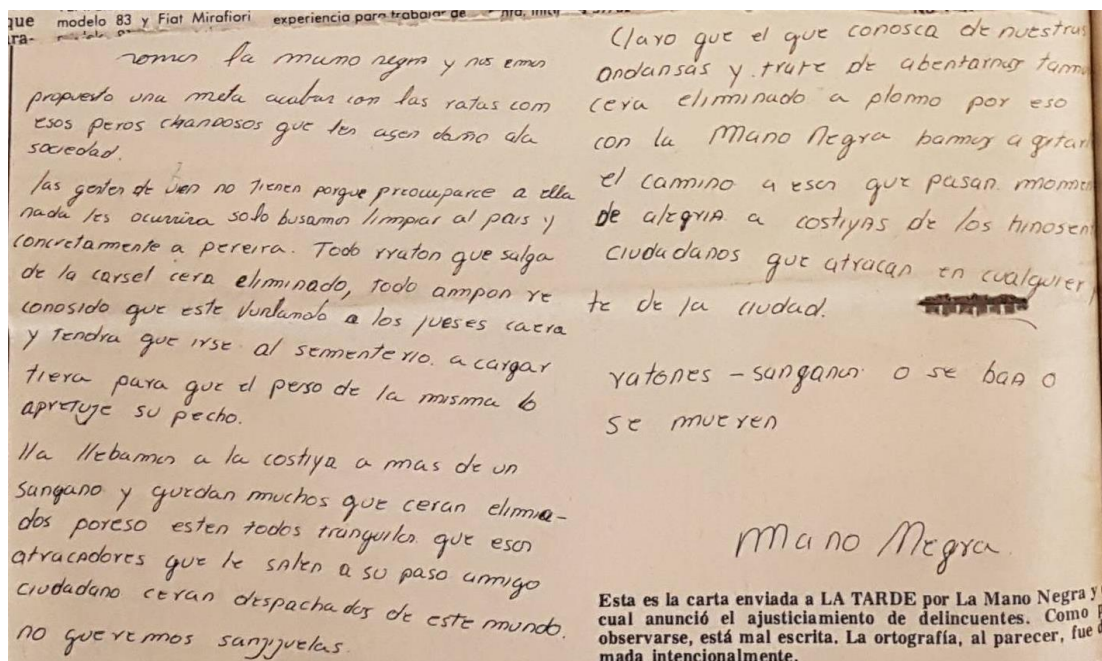 que modelo 83 y Fiat Mirafiori experiencia para trabajar de
ra-
somos la mano negra y nos emos
propuesto una meta acabar con las ratas com
esos peros chandosos que ten asen daño ala
sociedad.
las gentes de vien no tienen porque preocuparce a ella
nada les ocurrira solo busamos limpiar al pais y
concretamente a pereira. Todo rraton que salga
de la carsel cera eliminado, todo ampon re
conosido que este vurlando a los jueses caera
y tendra que irse al sementerio. a cargar
tiera para que el peso de la misma lo
apretuje su pecho.
lla llebamos a la costiya a mas de un
sangano y guedan muchos que ceran elimia-
dos poreso esten todos tranquilos que esos
atracadores que le salen a su paso amigo
ciudadano ceran despachados de este mundo.
no queremos sanjijuelas.
Claro que el que conosca de nuestras
andansas y trate de abentarnos tamb
cera eliminado a plomo por eso
con la Mano Negra bamos a qitar
el camino a esos que pasan momen
de alegria a costiyas de los hinosen
ciudadanos que atracan en cualquier
te de la ciudad.
ratones - sanganos o se ban o
se mueren
Mano Negra.
Esta es la carta enviada a LA TARDE por La Mano Negra y
cual anunció el ajusticiamiento de delincuentes. Como
observarse, está mal escrita. La ortografía, al parecer, fue
mada intencionalmente.